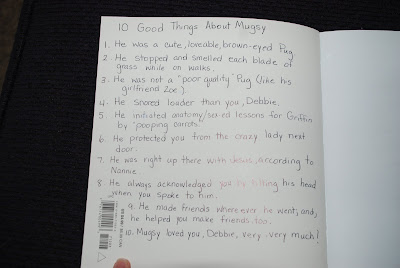 10 Good Things About Mugsy
1. He was a cute, loveable, brown-eyed Pug
2. He stopped and smelled each blade of
grass while on walks.
3. He was not a "poor quality" Pug (like his
girlfriend Zoe).
4. He snored louder than you, Debbie.
5. He initiated anatomy/sex-ed lessons for Griffin
by "pooping carrots."
6. He protected you from the crazy lady next
door.
7. He was right up there with Jesus, according to
Nannie.
8. He always acknowledged you by tilting his head
when you spoke to him.
9. He made friends where ever he went; and,
he helped you make friends, too.
10. Mugsy loved you, Debbie, very very much!